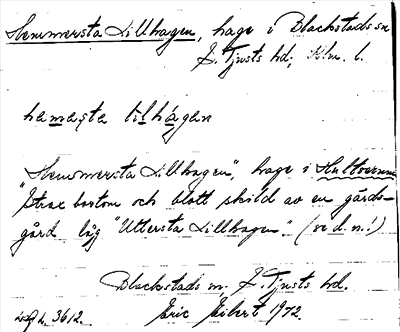 Hemmersta Lillhagen, hage i Blackstads sn
S. Tjusts hd; Klm. l.
hamaṣta lilhágan
"Hemmersta Lillhagen", hage i Hultserum
"Strax bortom och blott skild av en gärds-
gård låg "Uttersta Lillhagen". (se d.n.!)
Blackstads sn, S. Tjusts hd.
3612. Eric Eckert 1972.